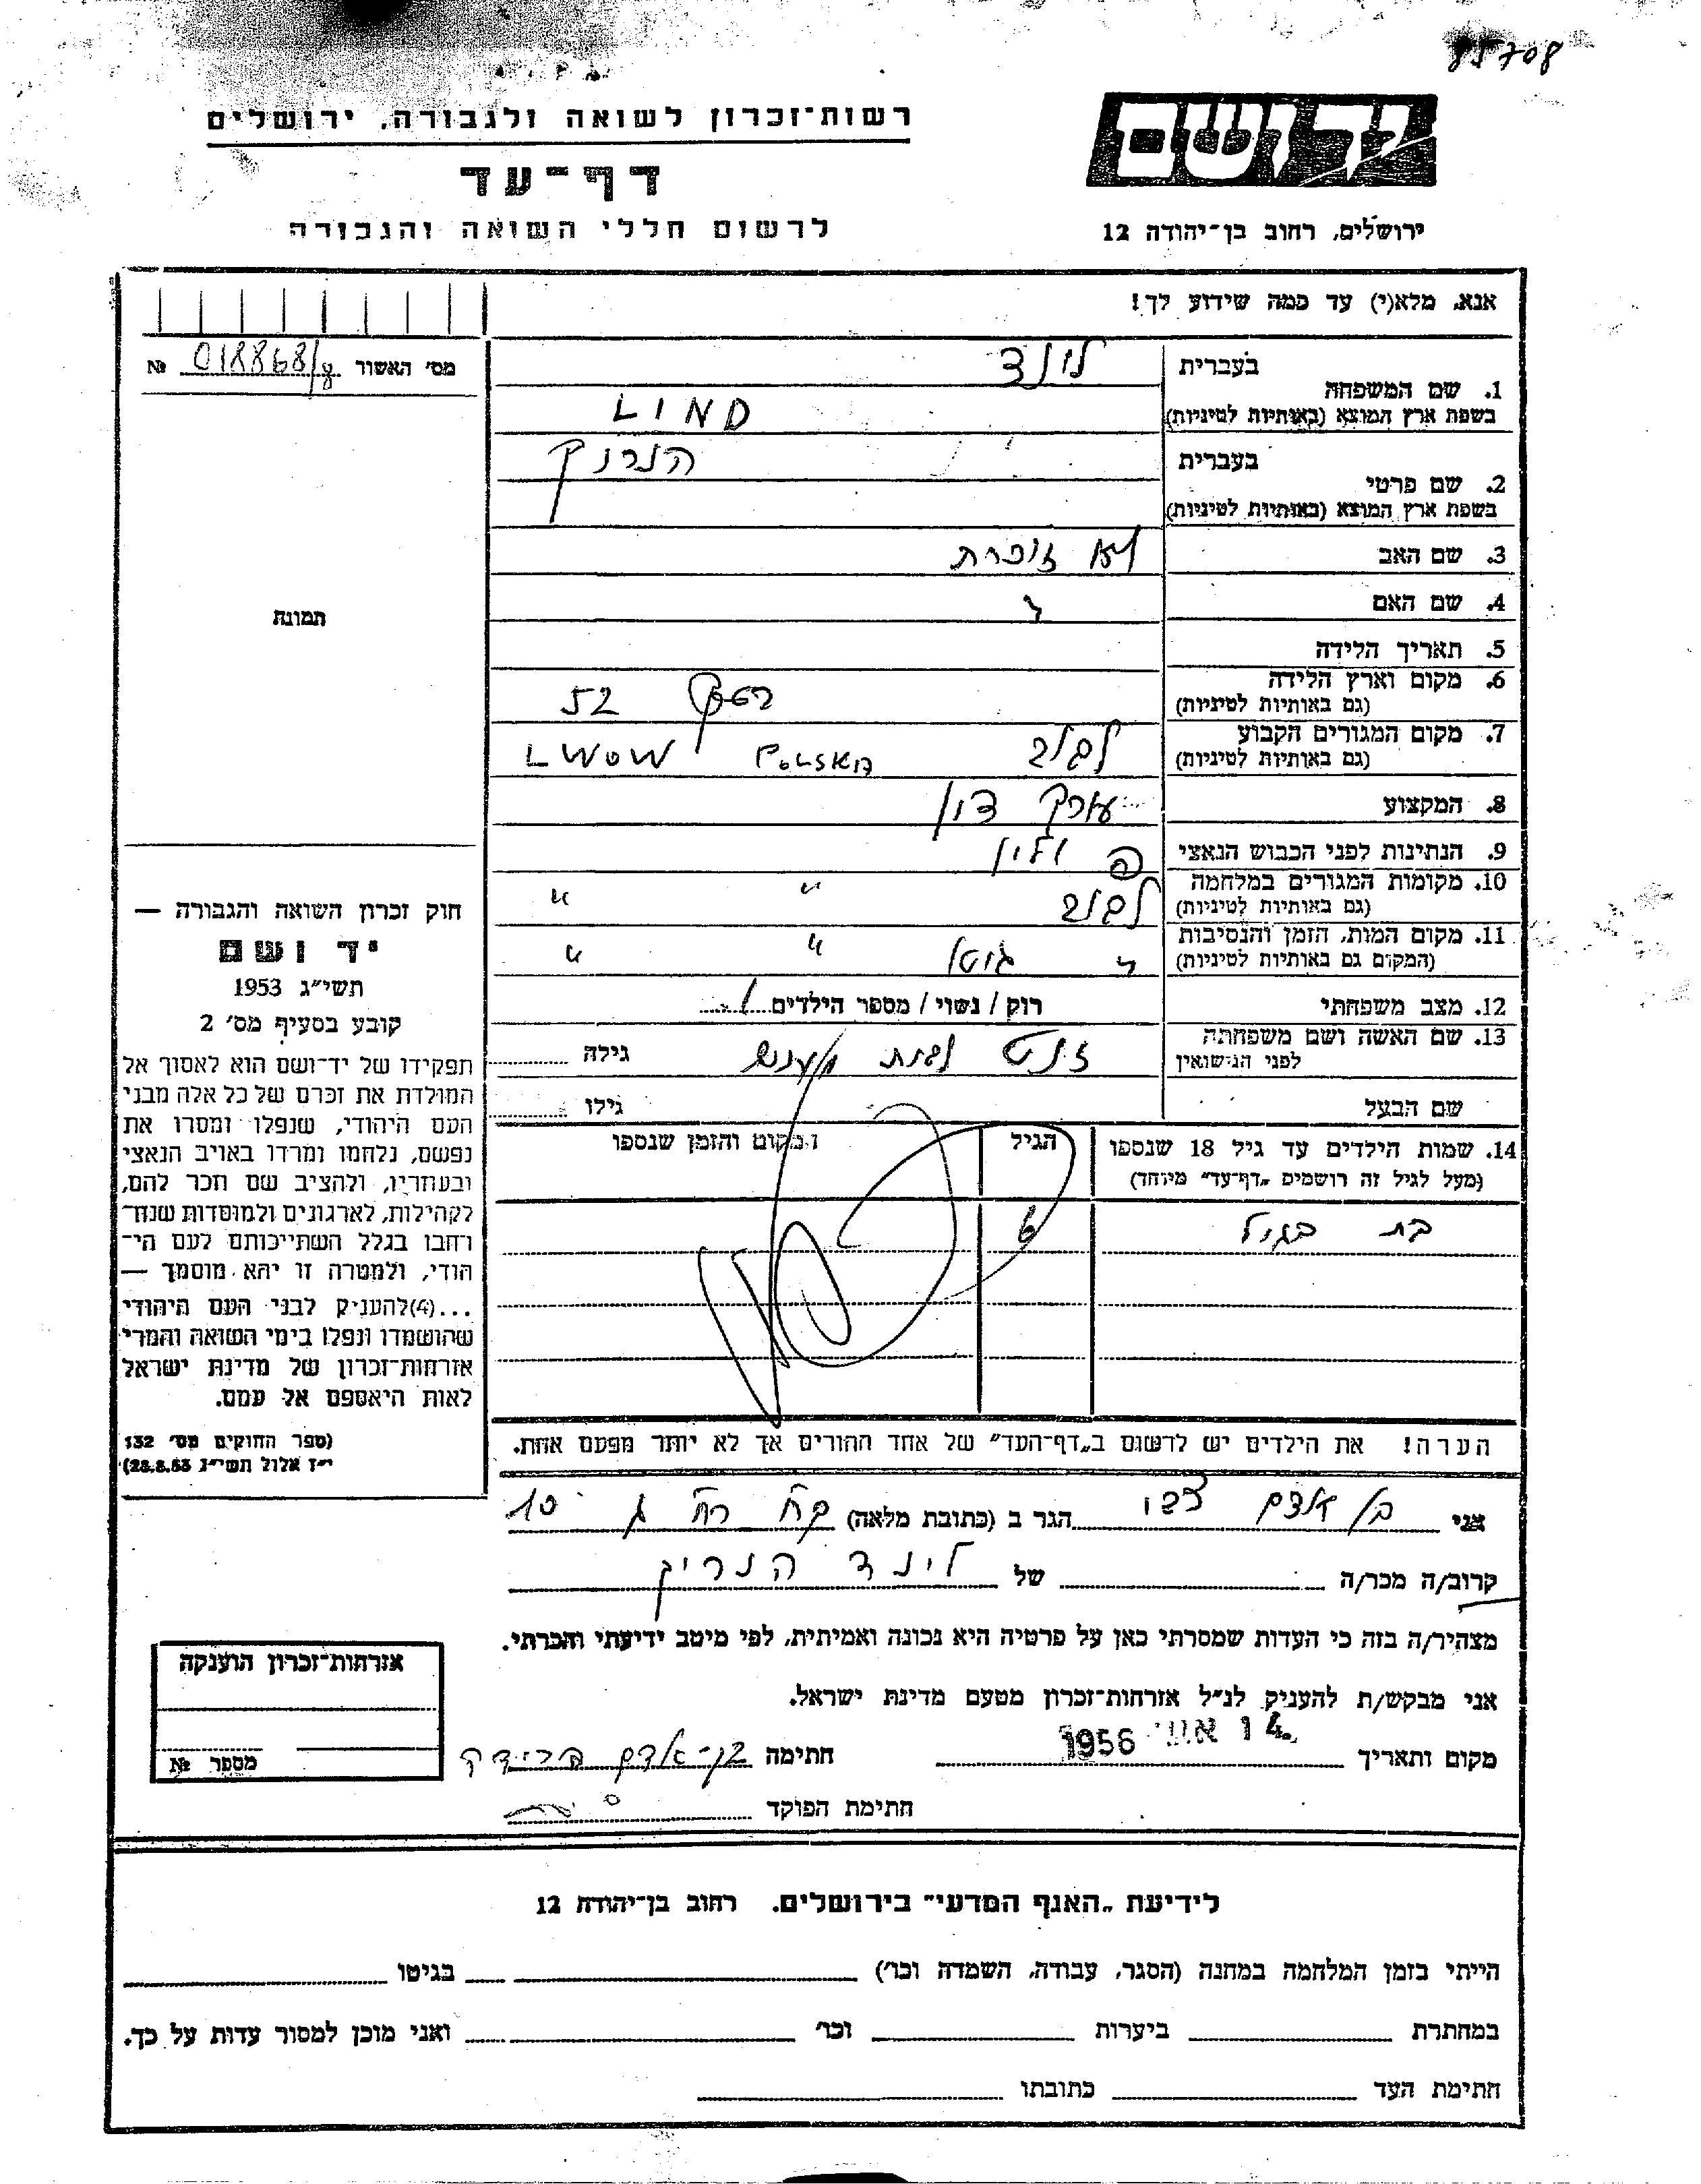 85708
רשות־זכרון לשואה ולגבורה, ירושלים
דף־עד
לרשום חללי השואה והגבורה
יד ושם
ירושלים, רחוב בן־יהודה 12
אנא, מלא(י) עד כמה שידוע לך!
מס' האשור 018868/8 №
1. שם המשפחה
בעברית לינד
בשפת ארץ המוצא (באותיות לטיניות) LIND
2. שם פרטי
בעברית הנריק
בשפת ארץ המוצא (באותיות לטיניות)
3. שם האב לא זוכרת
4. שם האם "
5. תאריך הלידה
6. מקום וארץ הלידה
(גם באותיות לטיניות) 52
7. מקום המגורים הקבוע לבוב POLSKA LWOW
(גם באותיות לטיניות)
8. המקצוע עורך דין
9. הנתינות לפני הכבוש הנאצי פולין
10. מקומות המגורים במלחמה לבוב " "
(גם באותיות לטיניות)
11. מקום המות, הזמן והנסיבות " גיטו " "
(המקום גם באותיות לטיניות)
12. מצב משפחתי רוק / נשוי / מספר הילדים 1
13. שם האשה ושם משפחתה
לפני הנישואין לבית גילה
שם הבעל גילו
14. שמות הילדים עד גיל 18 שנספו
(מעל לגיל זה רושמים "דף־עד" מיוחד)
הגיל
המקום והזמן שנספו
בת בגיל 6
הערה! את הילדים יש לרשום ב"דף־העד" של אחד ההורים אך לא יותר מפעם אחת.
תמונה
חוק זכרון השואה והגבורה —
יד ושם
תשי"ג 1953
קובע בסעיף מס' 2
תפקידו של יד־ושם הוא לאסוף אל
המולדת את זכרם של כל אלה מבני
העם היהודי, שנפלו ומסרו את
נפשם, נלחמו ומרדו באויב הנאצי
ובעוזריו, ולהציב שם וזכר להם,
לקהילות, לארגונים ולמוסדות שנח־
רבו בגלל השתייכותם לעם הי־
הודי, ולמטרה זו יהא מוסמך —
...(4)להעניק לבני העם היהודי
שהושמדו ונפלו בימי השואה והמרי
אזרחות־זכרון של מדינת ישראל
לאות היאספם אל עמם.
(ספר החוקים מס' 132
י"ז אלול תשי"ג 28.8.53)
אני בן אדם הגר ב (כתובת מלאה) 10
קרוב/ה מכר/ה של לינד הנריק
מצהיר/ה בזה כי העדות שמסרתי כאן על פרטיה היא נכונה ואמיתית, לפי מיטב ידיעתי והכרתי.
אני מבקש/ת להעניק לנ"ל אזרחות־זכרון מטעם מדינת ישראל.
מקום ותאריך 1956 חתימה בן־אדם פרידה
חתימת הפוקד
אזרחות־זכרון הוענקה
מספר №
לידיעת "האגף המדעי" בירושלים. רחוב בן־יהודה 12
הייתי בזמן המלחמה במחנה (הסגר, עבודה, השמדה וכו') בגיטו
במחתרת ביערות וכו' ואני מוכן למסור עדות על כך.
חתימת העד כתובתו